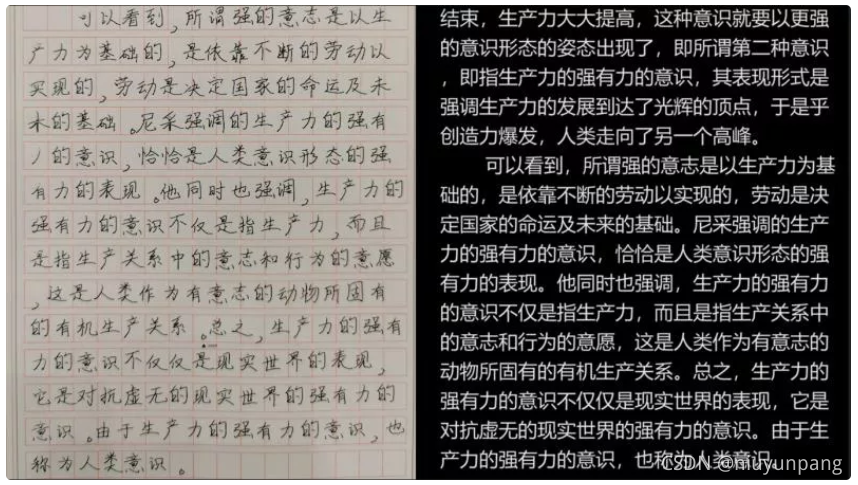 可以看到，所谓强的意志是以生
产力为基础的，是依靠不断的劳动以
实现的，劳动是决定国家的命运及未
来的基础。尼采强调的生产力的强有
力的意识，恰恰是人类意识形态的强
有力的表现。他同时也强调，生产力的
强有力的意识不仅是指生产力，而且
是指生产关系中的意志和行为的意愿
，这是人类作为有意志的动物所固有
的有机生产关系。总之，生产力的强有
力的意识不仅仅是现实世界的表现，
它是对抗虚无的现实世界的强有力的
意识。由于生产力的强有力的意识，也
称为人类意识。
结束，生产力大大提高，这种意识就要以更强
的意识形态的姿态出现了，即所谓第二种意识
，即指生产力的强有力的意识，其表现形式是
强调生产力的发展到达了光辉的顶点，于是乎
创造力爆发，人类走向了另一个高峰。
可以看到，所谓强的意志是以生产力为基
础的，是依靠不断的劳动以实现的，劳动是决
定国家的命运及未来的基础。尼采强调的生产
力的强有力的意识，恰恰是人类意识形态的强
有力的表现。他同时也强调，生产力的强有力
的意识不仅是指生产力，而且是指生产关系中
的意志和行为的意愿，这是人类作为有意志的
动物所固有的有机生产关系。总之，生产力的
强有力的意识不仅仅是现实世界的表现，它是
对抗虚无的现实世界的强有力的意识。由于生
产力的强有力的意识，也称为人类意识。
CSDN @muyunpang